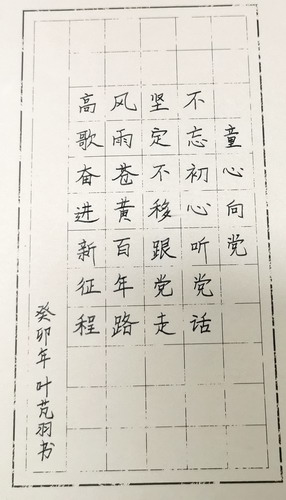 童心向党
不忘初心听党话
坚定不移跟党走
风雨苍黄百年路
高歌奋进新征程
癸卯年叶芃羽书